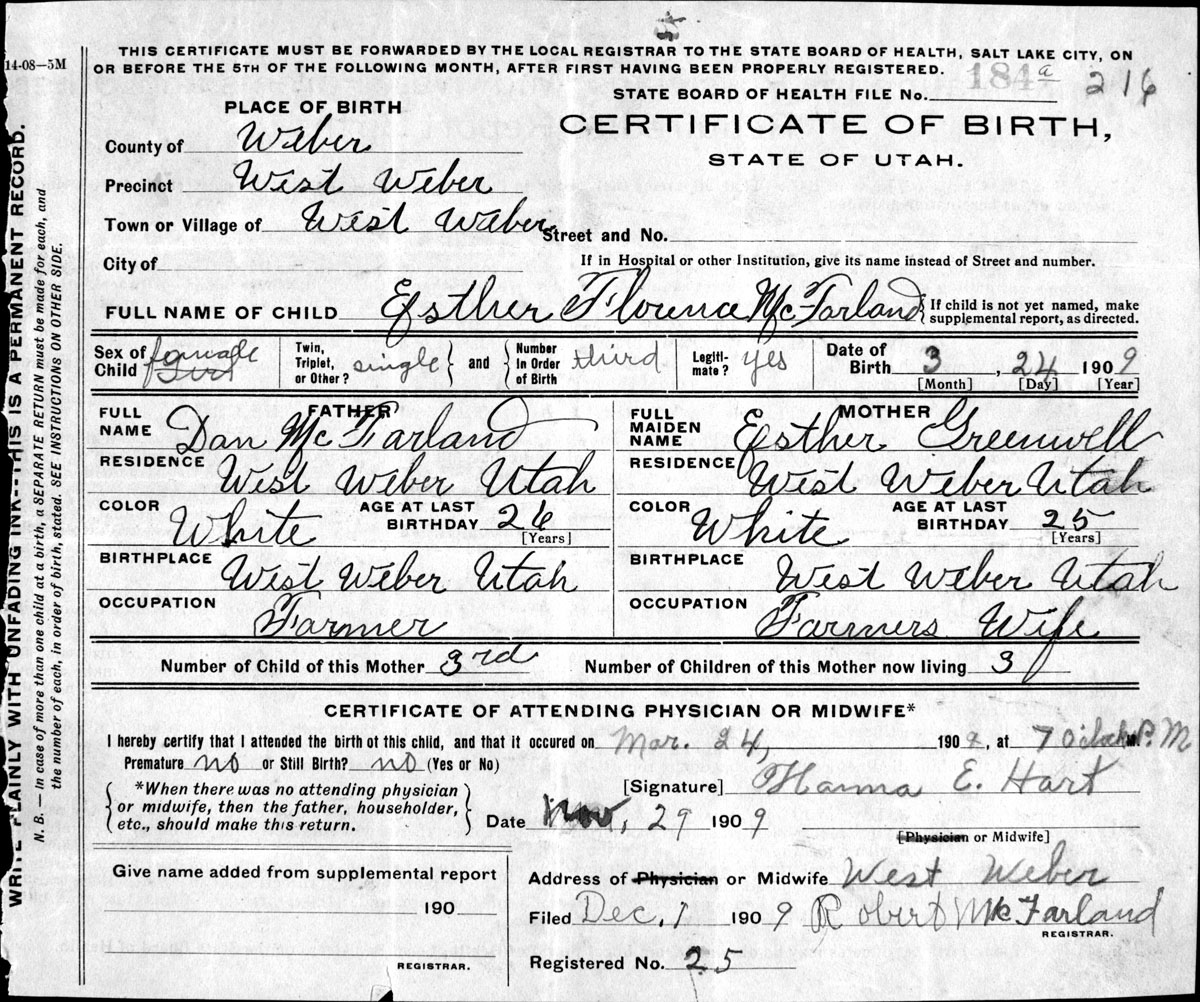 THIS CERTIFICATE MUST BE FORWARDED BY THE LOCAL REGISTRAR TO THE STATE BOARD OF HEALTH, SALT LAKE CITY, ON
14-08—5M
OR BEFORE THE 5TH OF THE FOLLOWING MONTH, AFTER FIRST HAVING BEEN PROPERLY REGISTERED.
STATE BOARD OF HEALTH FILE No. 184a 216
WRITE PLAINLY WITH UNFADING INK--THIS IS A PERMANENT RECORD.
N. B. — In case of more than one child at a birth, a SEPARATE RETURN must be made for each, and
the number of each, in order of birth, stated. SEE INSTRUCTIONS ON OTHER SIDE.
PLACE OF BIRTH
CERTIFICATE OF BIRTH,
STATE OF UTAH.
County of Weber
Precinct West Weber
Town or Village of West Weber Street and No.
City of
If in Hospital or other Institution, give its name instead of Street and number.
FULL NAME OF CHILD Esther Florence McFarland { If child is not yet named, make
supplemental report, as directed.
Sex of Child female Girl
Twin, Triplet, or Other? single } and { Number in Order of Birth third
Legiti-mate? yes
Date of Birth 3, 24 1909
[Month] [Day] [Year]
FATHER
FULL NAME Dan McFarland
RESIDENCE West Weber Utah
COLOR White AGE AT LAST BIRTHDAY 26
[Years]
BIRTHPLACE West Weber Utah
OCCUPATION Farmer
MOTHER
FULL MAIDEN NAME Esther Greenwell
RESIDENCE West Weber Utah
COLOR White AGE AT LAST BIRTHDAY 25
[Years]
BIRTHPLACE West Weber Utah
OCCUPATION Farmers Wife
Number of Child of this Mother 3rd Number of Children of this Mother now living 3
CERTIFICATE OF ATTENDING PHYSICIAN OR MIDWIFE*
I hereby certify that I attended the birth of this child, and that it occured on Mar. 24, 1909, at 7 Oclock P.M
Premature no or Still Birth? no (Yes or No)
{ *When there was no attending physician
or midwife, then the father, householder,
etc., should make this return. }
[Signature] Hanna E. Hart
Date Nov, 29 1909
[Physician or Midwife]
Address of Physician or Midwife West Weber
Filed Dec, 1 1909 Robert McFarland
REGISTRAR.
Registered No. 25
Give name added from supplemental report
190
REGISTRAR.